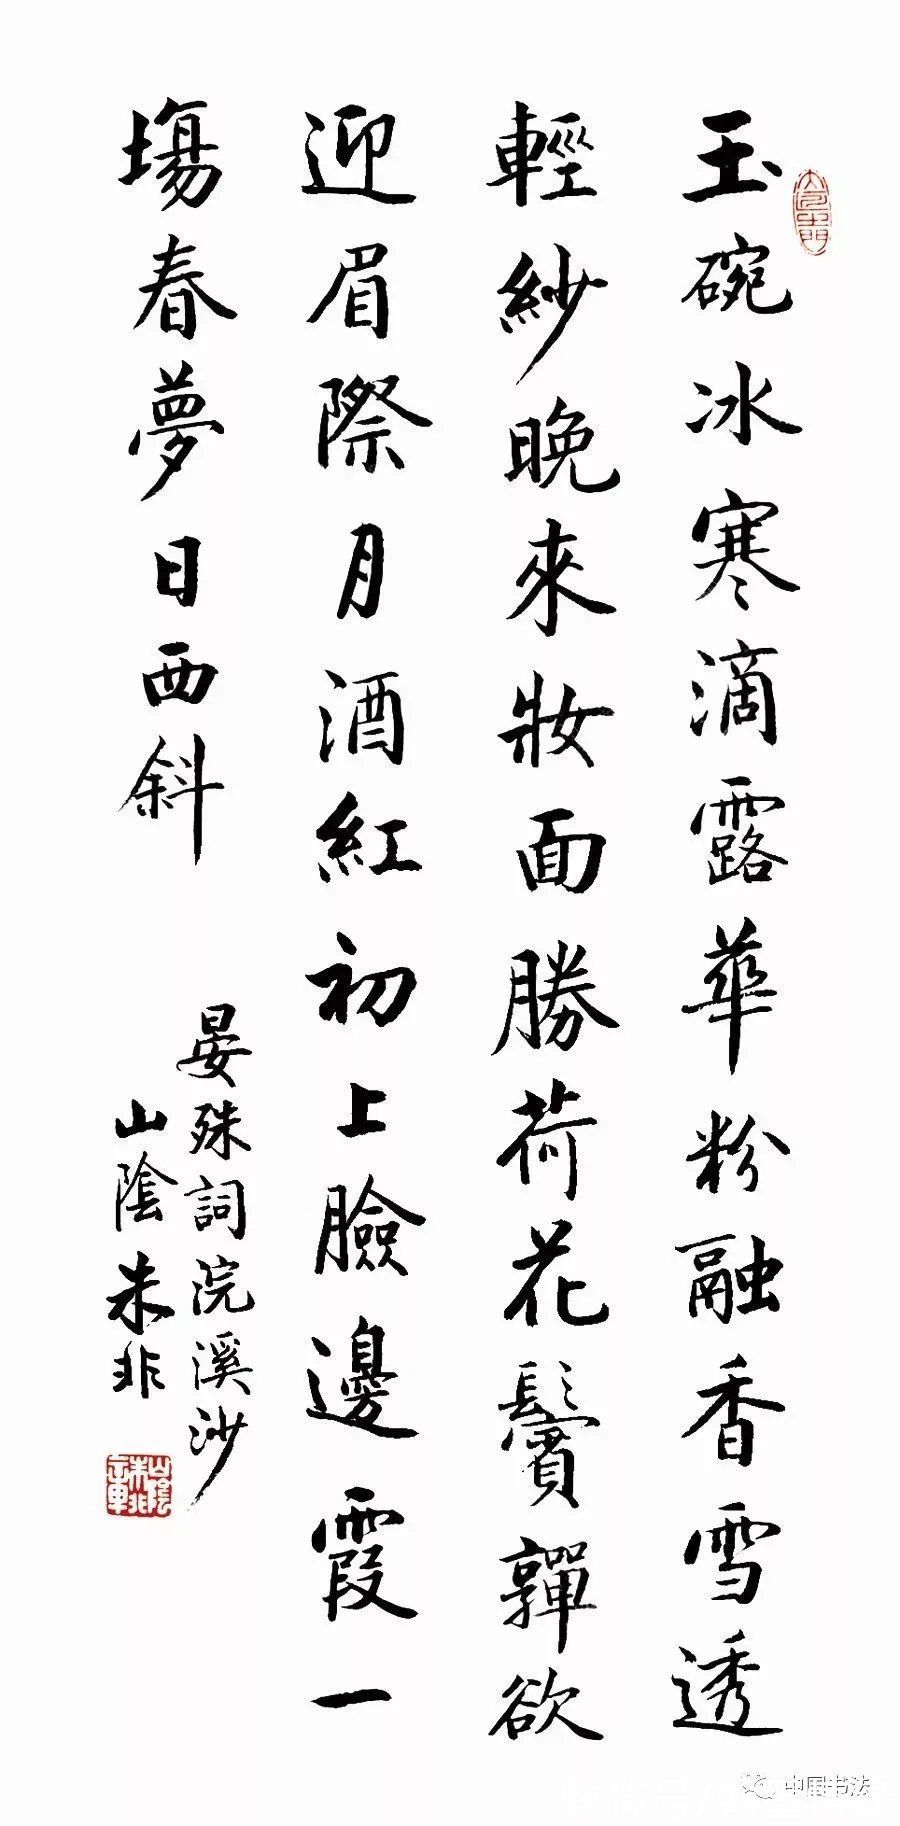 玉碗冰寒滴露華粉融香雪透
輕紗晚來妝面勝荷花鬢嚲欲
迎眉際月酒紅初上臉邊霞一
場春夢日西斜
晏殊詞浣溪沙
山陰朱非
中国书法